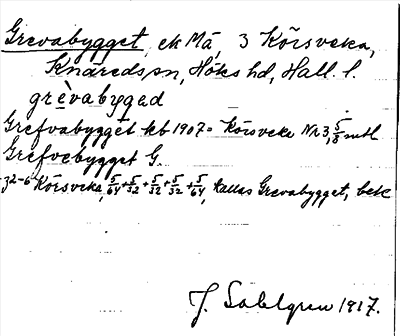 Grevabygget, ek Må, 3 Körsveka,
Knäreds sn, Höks hd, Hall. l.
grèvabygəd
Grefvabygget kb 1907 = Körsveka Nr 3, 5/8 mtl
Grefvebygget G.
32-6 Körsveka, 5/64 + 5/32 + 5/32 + 5/32 + 5/64, kallas Grevabygget, bek
J. Sahlgren 1917.